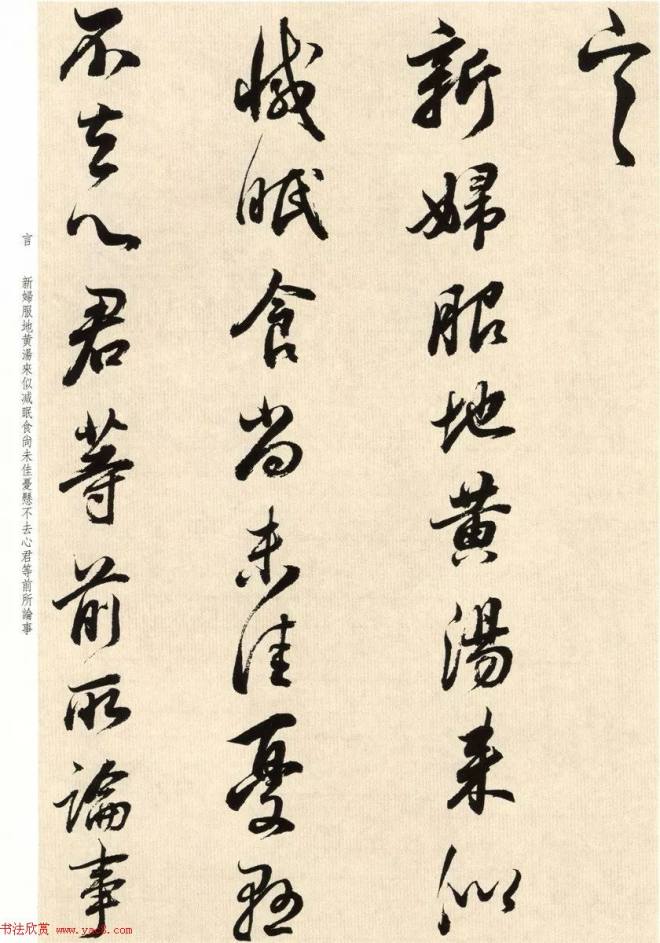 言
新婦服地黄湯来似
減眠食尚未佳憂懸
不去心君等前所論事
言　新婦服地黄湯來似减眠食尚未佳憂懸不去心君等前所論事
书法欣赏 www.yac8.com